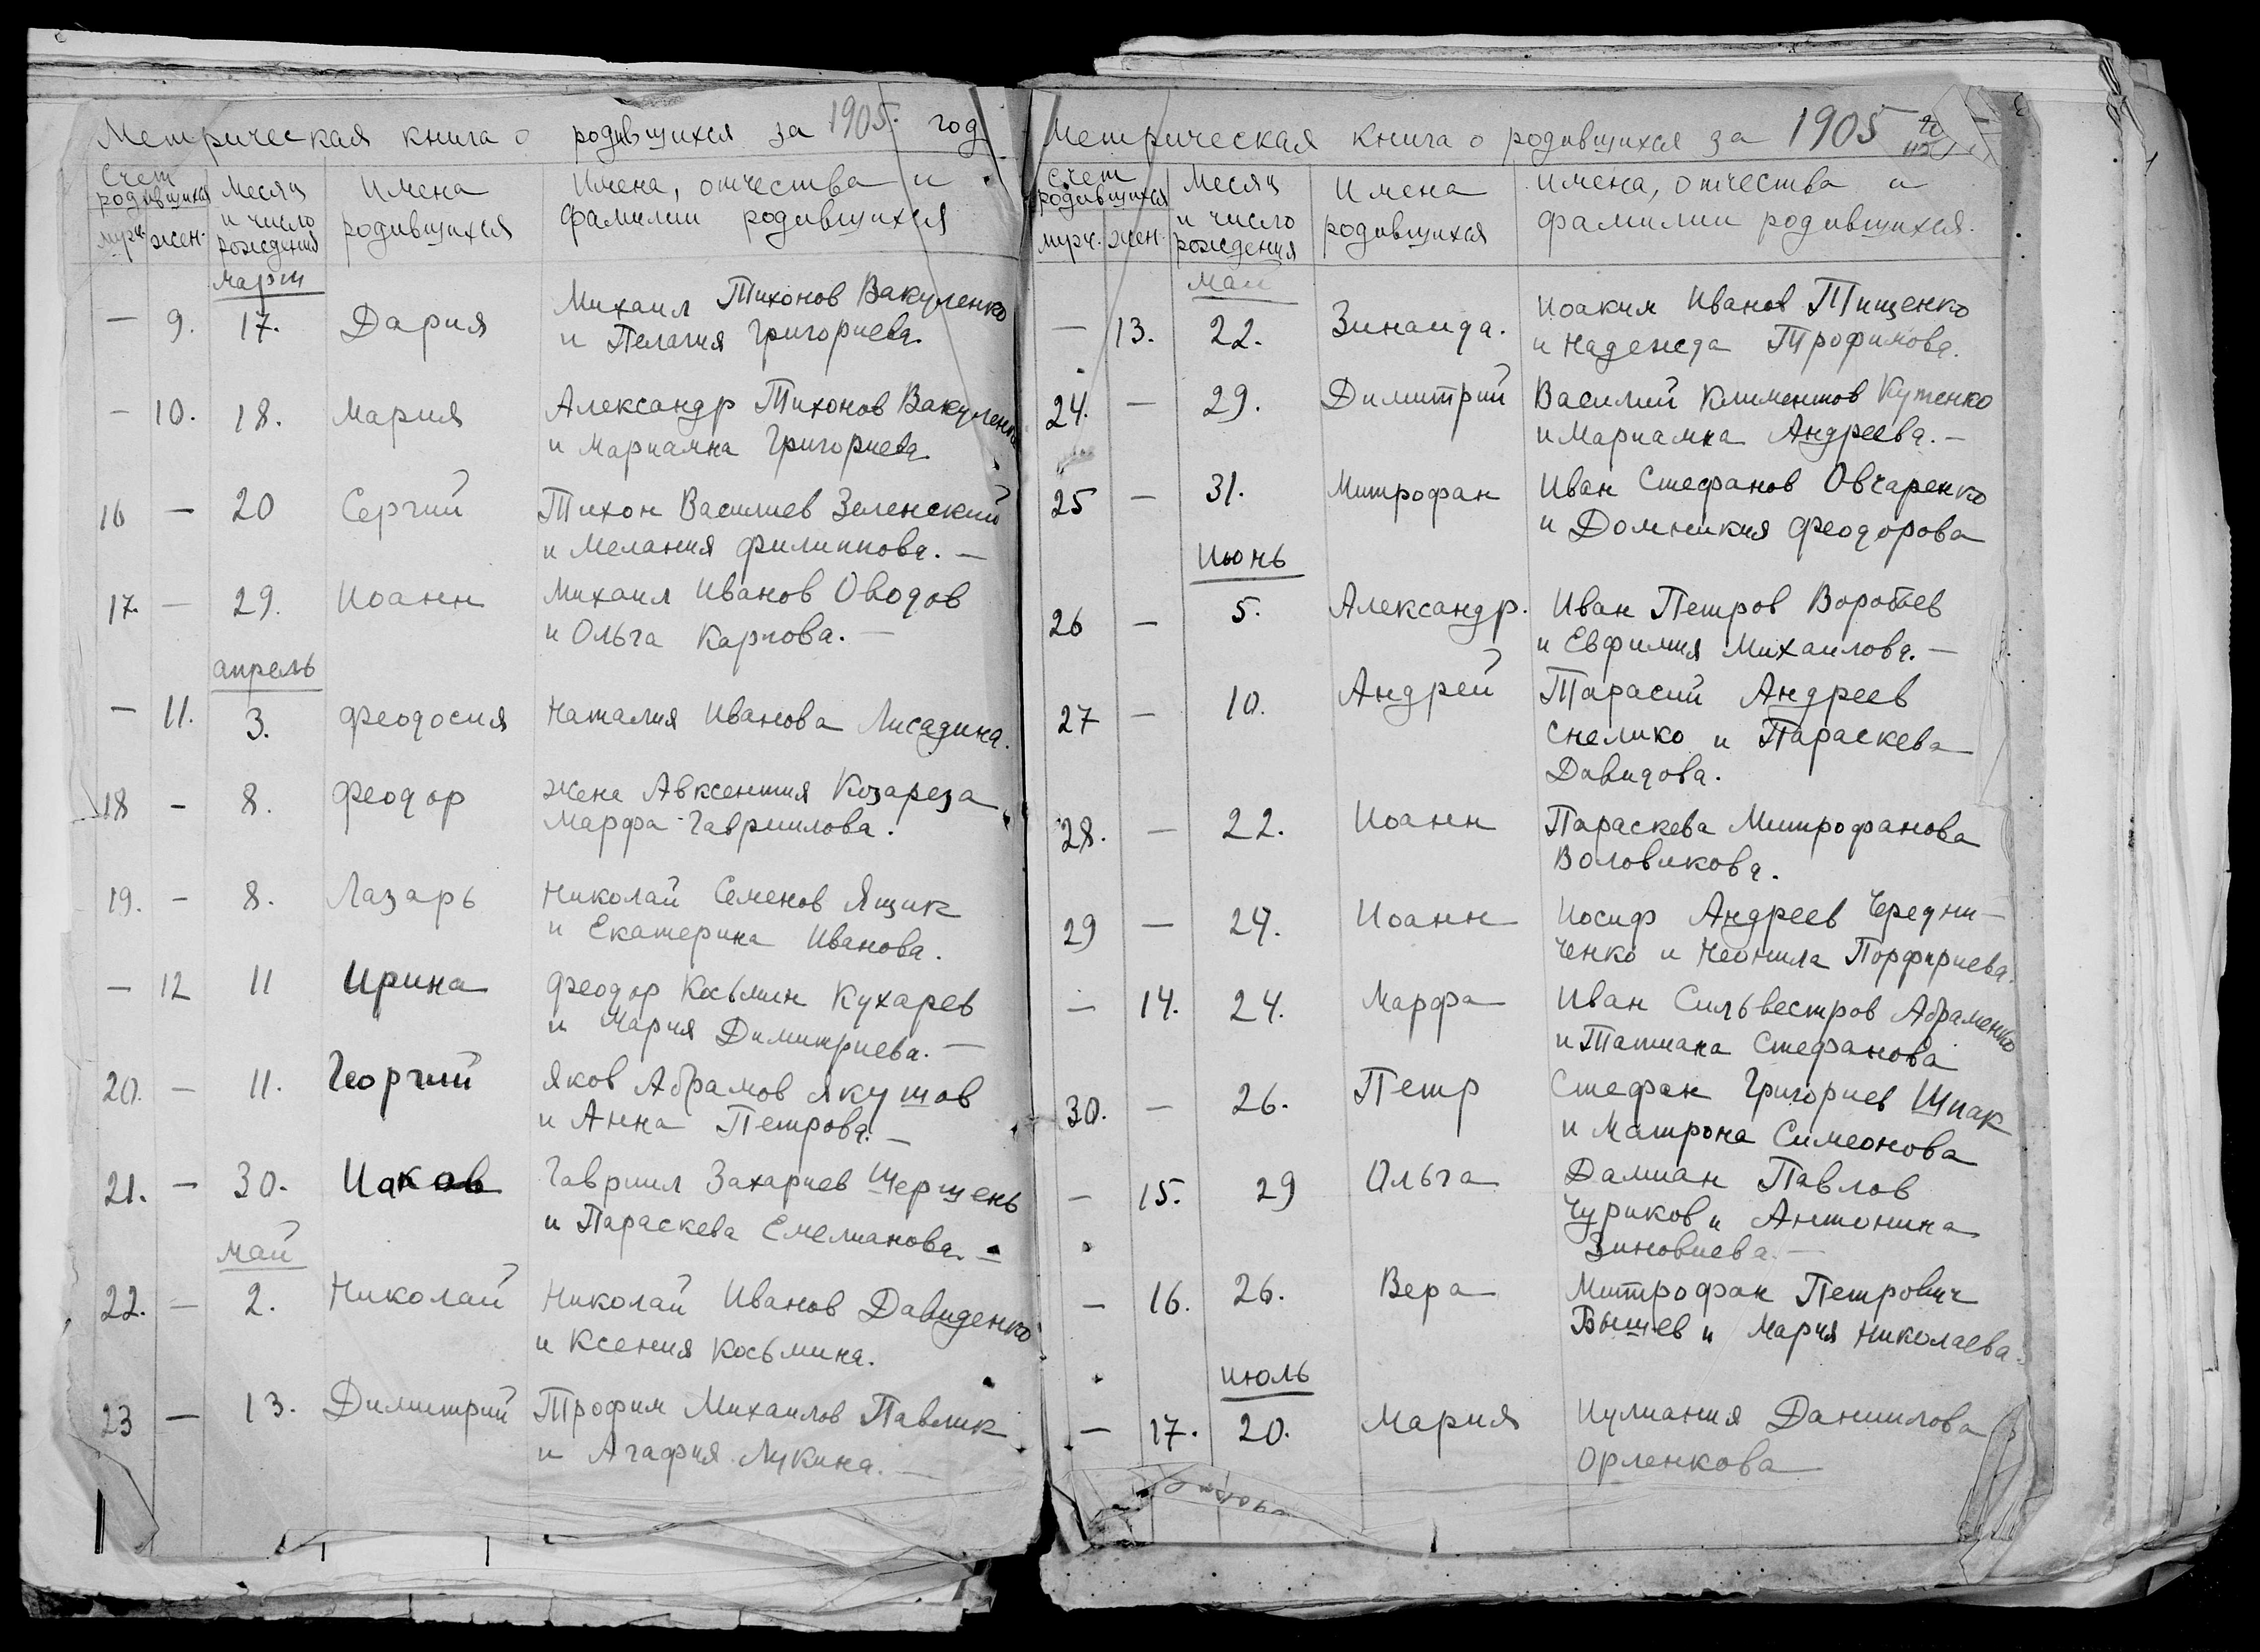 Метрическая книга о родившихся за 1905. год
Счет родившихся
Месяц и число рождения
Имена родившихся
Имена, отчества и фамилии родившихся
муж. жен.
март
— 9. 17. Дария Михаил Тихонов Вакуленко
и Пелагия Григориева.
— 10. 18. Мария Александр Тихонов Вакуленко
и Мариамна Григориева.
16 — 20 Сергий Тихон Василиев Зеленский
и Мелания Филиппова. —
17. — 29. Иоанн Михаил Иванов Оводов
и Ольга Карпова. —
апрель
— 11. 3. Феодосия Наталия Иванова Лисадина.
18 — 8. Феодор жена Авксентия Козареза
Марфа Гавриилова.
19. — 8. Лазарь Николай Семенов Ящик
и Екатерина Иванова.
— 12 11 Ирина Феодор Косьмин Кухарев
и Мария Димитриева. —
20. — 11. Георгий Яков Абрамов Якушов
и Анна Петрова. —
21. — 30. Иаков Гавриил Захариев Шершень
и Параскева Емелианова. —
май
22. — 2. Николай Николай Иванов Давиденко
и Ксения Косьмина.
23 — 13. Димитрий Трофим Михаилов Павлик
и Агафия Лукина. —
Метрическая книга о родившихся за 1905
Счет родившихся
Месяц и число рождения
Имена родившихся
Имена, отчества и фамилии родившихся.
муж. жен.
май
— 13. 22. Зинаида. Иоаким Иванов Тищенко
и Надежда Трофимова.
24. — 29. Димитрий Василий Климентов Кутенко
и Мариамна Андреева. —
25 — 31. Митрофан Иван Стефанов Овчаренко
и Домникия Феодорова
Июнь
26 — 5. Александр. Иван Петров Воробьев
и Евфимия Михаилова. —
27 — 10. Андрей Тарасий Андреев
Снелико и Параскева
Давидова.
28. — 22. Иоанн Параскева Митрофанова
Воловикова.
29 — 24. Иоанн Иосиф Андреев Чередни-
ченко и Неонила Порфириева.
— 14. 24. Марфа Иван Сильвестров Абраменко
и Татиана Стефанова
30. — 26. Петр Стефан Григориев Шпак
и Матрона Симеонова
— 15. 29 Ольга Дамиан Павлов
Чуриков и Антонина
Зиновиева. —
— 16. 26. Вера Митрофан Петрович
Бышев и Мария Николаева.
июль
— 17. 20. Мария Иулиания Даниилова
Орленкова